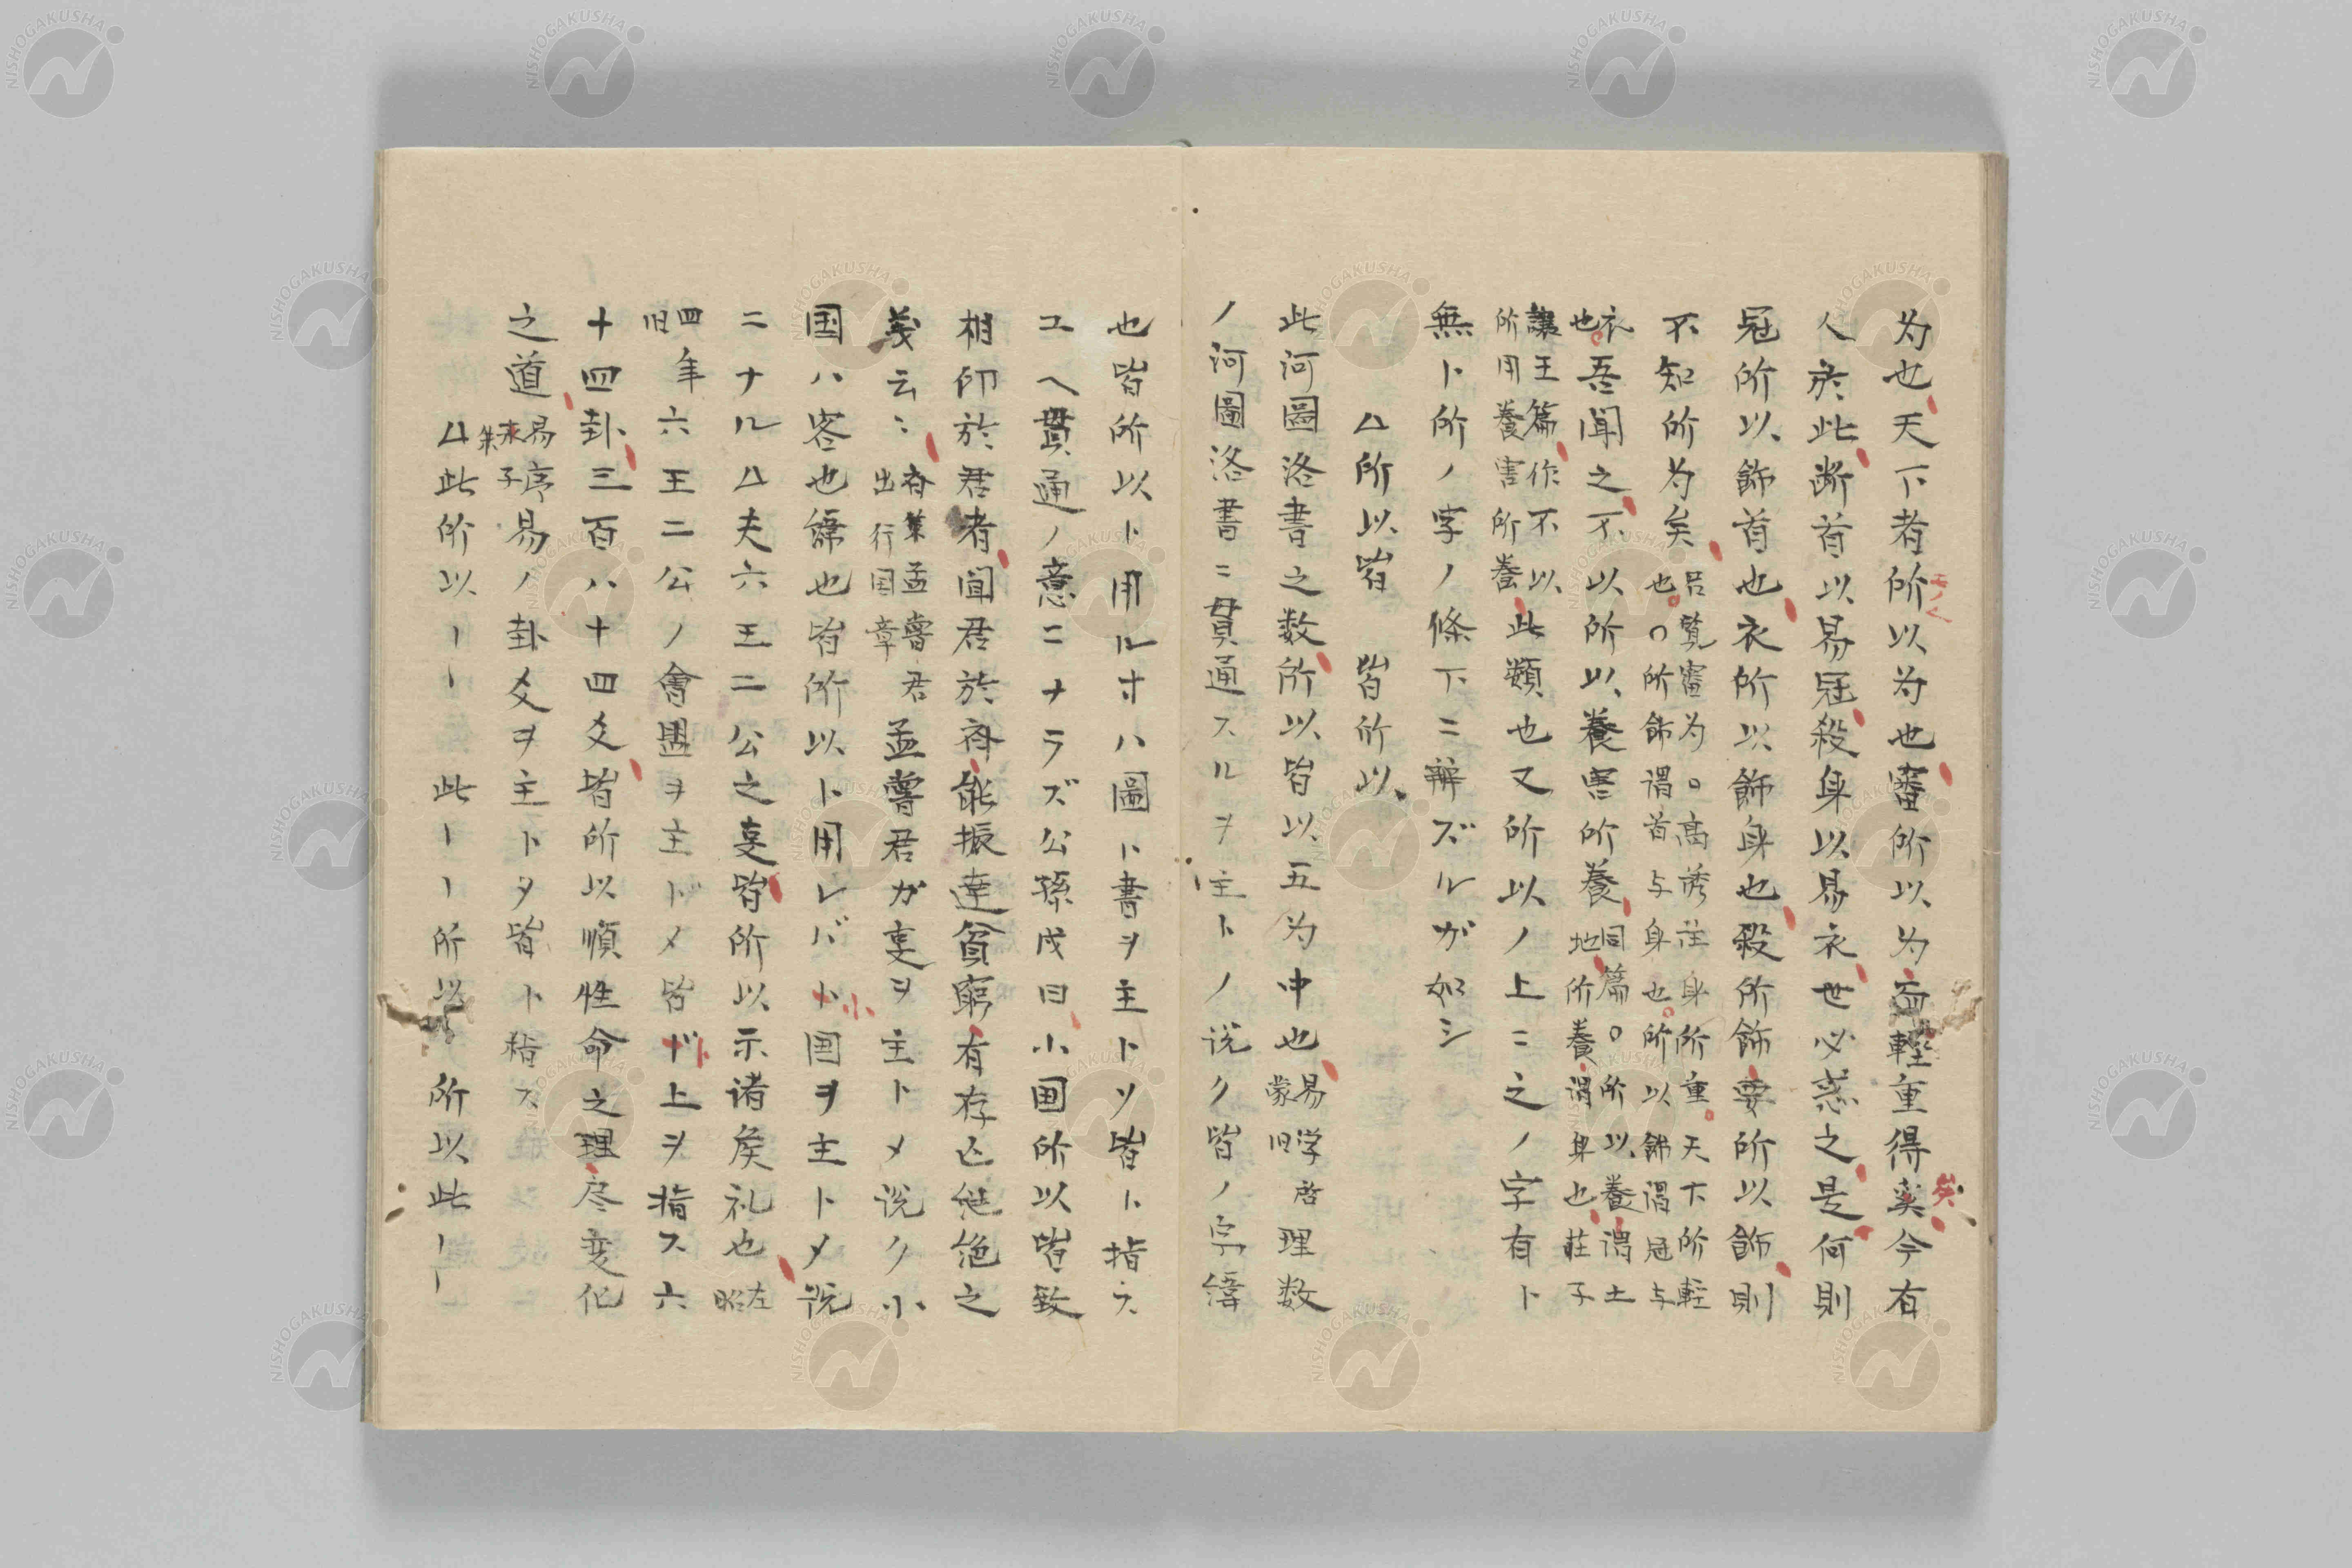 為也天下者所以為也審所以為而輕重得矣今有
人於此断首以易冠殺身以易衣世必惑之是何則
冠所以飾首也衣所以飾身也殺所飾要所以飾則
不知所為矣呂覧審為。高誘注身所重天下所輕
也。○所飾謂首与身也。所以飾謂冠与
衣
也。吾聞之不以所以養害所養同篇。所以養謂土
地所養謂身也荘子
讓王篇作不以
所用養害所養此類也又所以ノ上ニ之ノ字有ト
無ト所ノ字ノ條下ニ辨ズルガ如シ
△所以皆 皆所以
此河圖洛書之数所以皆以五為中也易学啓
蒙旧理数
ノ河圖洛書ニ貫通スルヲ主トノ说ク皆ノ字
也皆所以ト用ルヰハ圖ト書ヲ主トソ皆ト指ス
ユヘ貫通ノ意ニナラズ公孫戍曰小国所以皆致
相印於君者聞君於齊能振達貧窮有存亡継絶之
義云〻齊策孟嘗君
出行国章孟嘗君ガ夏ヲ主トメ说ク小
国ハ客也皆所以ト用レバト小国ヲ主トメ説
ニナル△夫六王二公之夏皆所以示诸矦礼也左
昭
四
旧年六王二公ノ會盟ヲ主ドメ皆ト上ヲ指ス六
十四卦三百八十四爻皆所以順性命之理尽変化
之道易序
朱子易ノ卦爻ヲ主トタ皆ト指ス
△此所以ーー 此ーー所以 所以此ーー